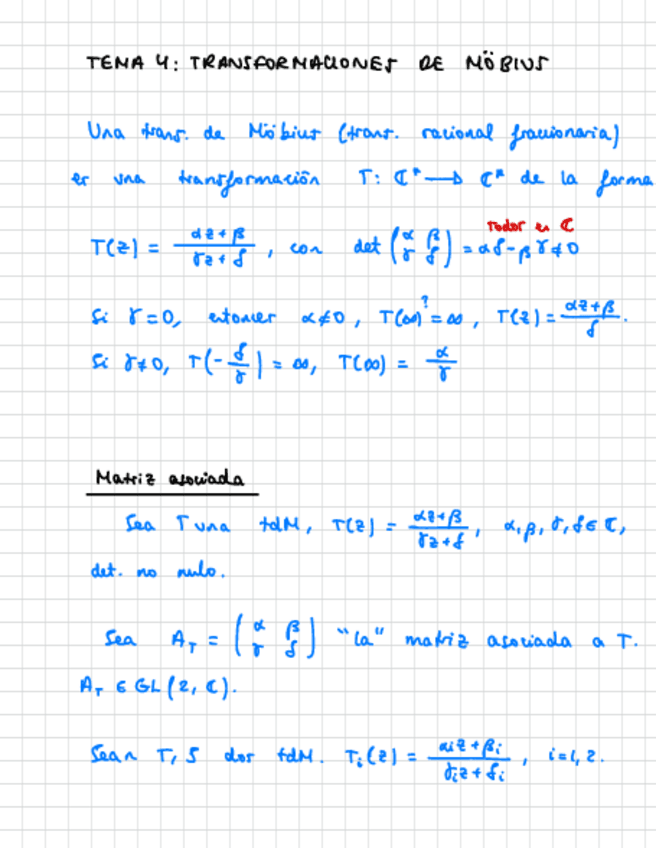 TEMA 4: TRANSFORMACIONES DE MÖBIUS
Una trans. de Möbius (trans. racional fraccionaria)
es una transformación T: ℂ* → ℂ* de la forma
Todos en ℂ
T(z) = (αz+β)/(γz+δ), con det (α β; γ δ) = αδ-βγ≠0
Si γ=0, entonces α≠0, T(∞) =? ∞, T(z) = (αz+β)/δ.
Si γ≠0, T(-δ/γ) = ∞, T(∞) = α/γ
Matriz asociada
Sea T una tdM, T(z) = (αz+β)/(γz+δ), α,β,γ,δ∈ℂ,
det. no nulo.
Sea A_T = (α β; γ δ) "la" matriz asociada a T.
A_T ∈ GL(2,ℂ).
Sean T, S dos tdM. T_i(z) = (α_i z+β_i)/(γ_i z+δ_i), i=1,2.